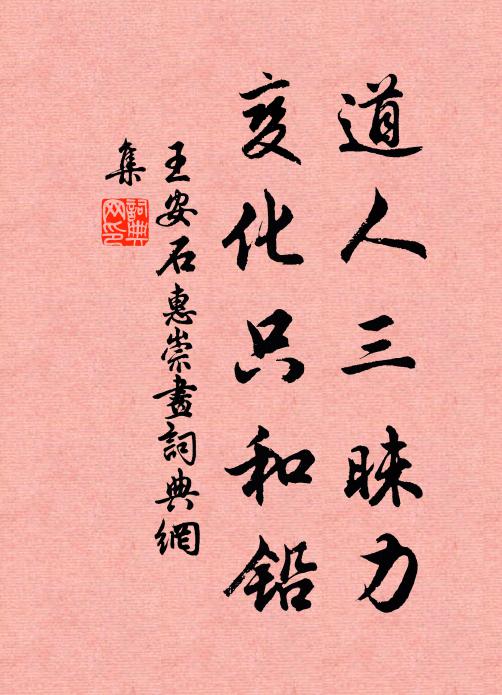 道人三昧力
变化只和铅
王安石惠崇畫詞典網
集
詞典网印